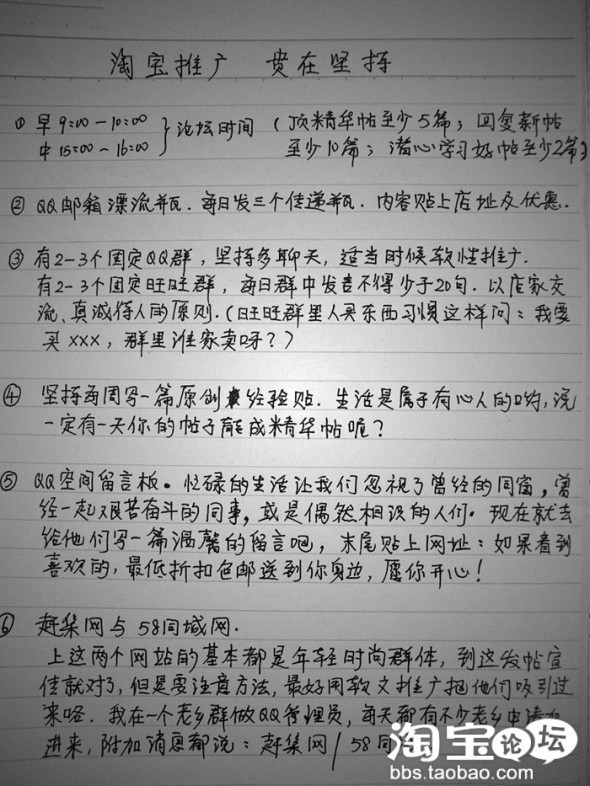 淘宝推广 贵在坚持
① 早9:00—10:00 } 论坛时间 (顶精华帖至少5篇; 回复新帖
中15:00—16:00 至少10篇; 潜心学习好帖至少2篇)
② QQ邮箱漂流瓶.每日发三个传递瓶.内容贴上店址及优惠.
③ 有2-3个固定QQ群,坚持多聊天,适当时候软性推广.
有2-3个固定旺旺群,每日群中发言不得少于20句.以店家交
流、真诚待人的原则.(旺旺群里人买东西习惯这样问:我要
买xxx,群里谁家卖呀??)
④ 坚持两周写一篇原创经验贴.生活是属于有心人的哟,说
一定有一天你的帖子能成精华帖呢?
⑤ QQ空间留言板。忙碌的生活让我们忽视了曾经的同窗,曾
经一起艰苦奋斗的同事,或是偶然相识的人们。现在就去
给他们写一篇温馨的留言吧,末尾贴上网址:如果看到
喜欢的,最低折扣包邮送到你身边,愿你开心!
⑥ 赶集网与58同城网.
上这两个网站的基本都是年轻时尚群体,到这发帖宣
传就对了,但是要注意方法,最好用软文推广把他们吸引过
来咯.我在一个老乡群做QQ管理员,每天都有不少老乡申请加
进来,附加消息都说:赶集网/58同
淘宝论坛
bbs.taobao.com